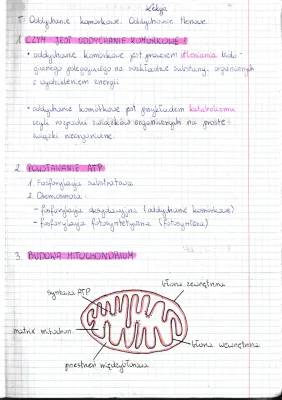 Lekcja
T: Oddychanie komórkowe. Oddychanie tlenowe.
1. CZYM JEST ODDYCHANIE KOMÓRKOWE?
• oddychanie komórkowe jest procesem utleniania biolo-
gicznego polegającego na rozkładzie substancji organicznych
z wydzieleniem energii
• oddychanie komórkowe jest przykładem katabolizmu
czyli rozpadu związków organicznych na proste
związki nieorganiczne.
2. POWSTAWANIE ATP
1. Fosforylacja substratowa
2. Chemiosmoza:
- fosforylacja oksydacyjna (oddychanie komórkowe)
- fosforylacja fotosyntetyczna (fotosynteza)
3. BUDOWA MITOCHONDRIUM
błona zewnętrzna
syntaza ATP
matrix mitochon.
błona wewnętrzna
przestrzeń międzybłonowa